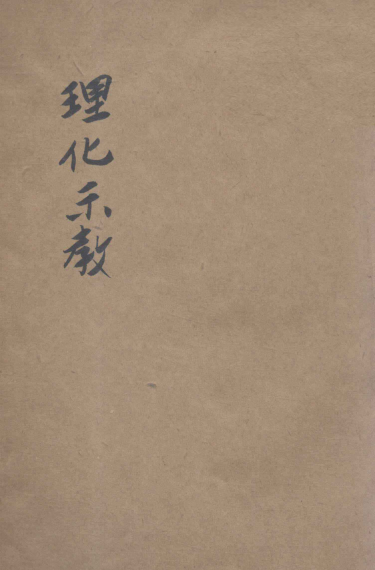 理化示教